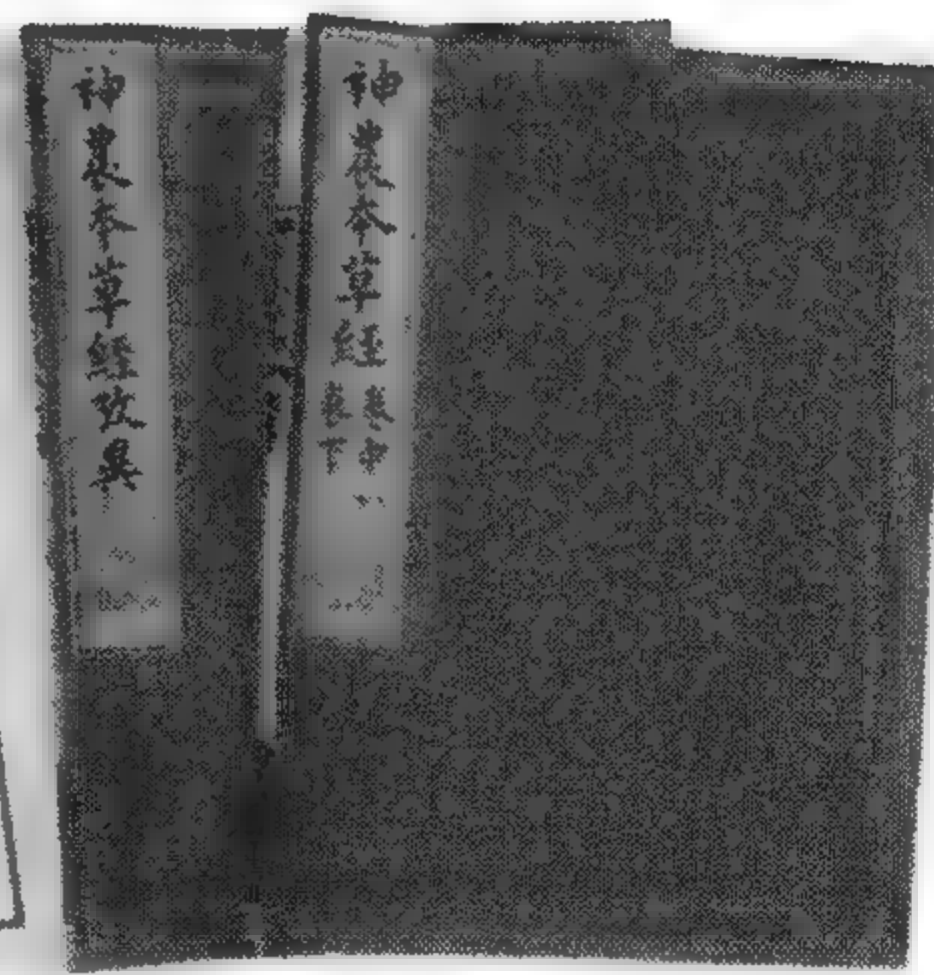 神農本草經
卷中
卷下
神農本草經攷異